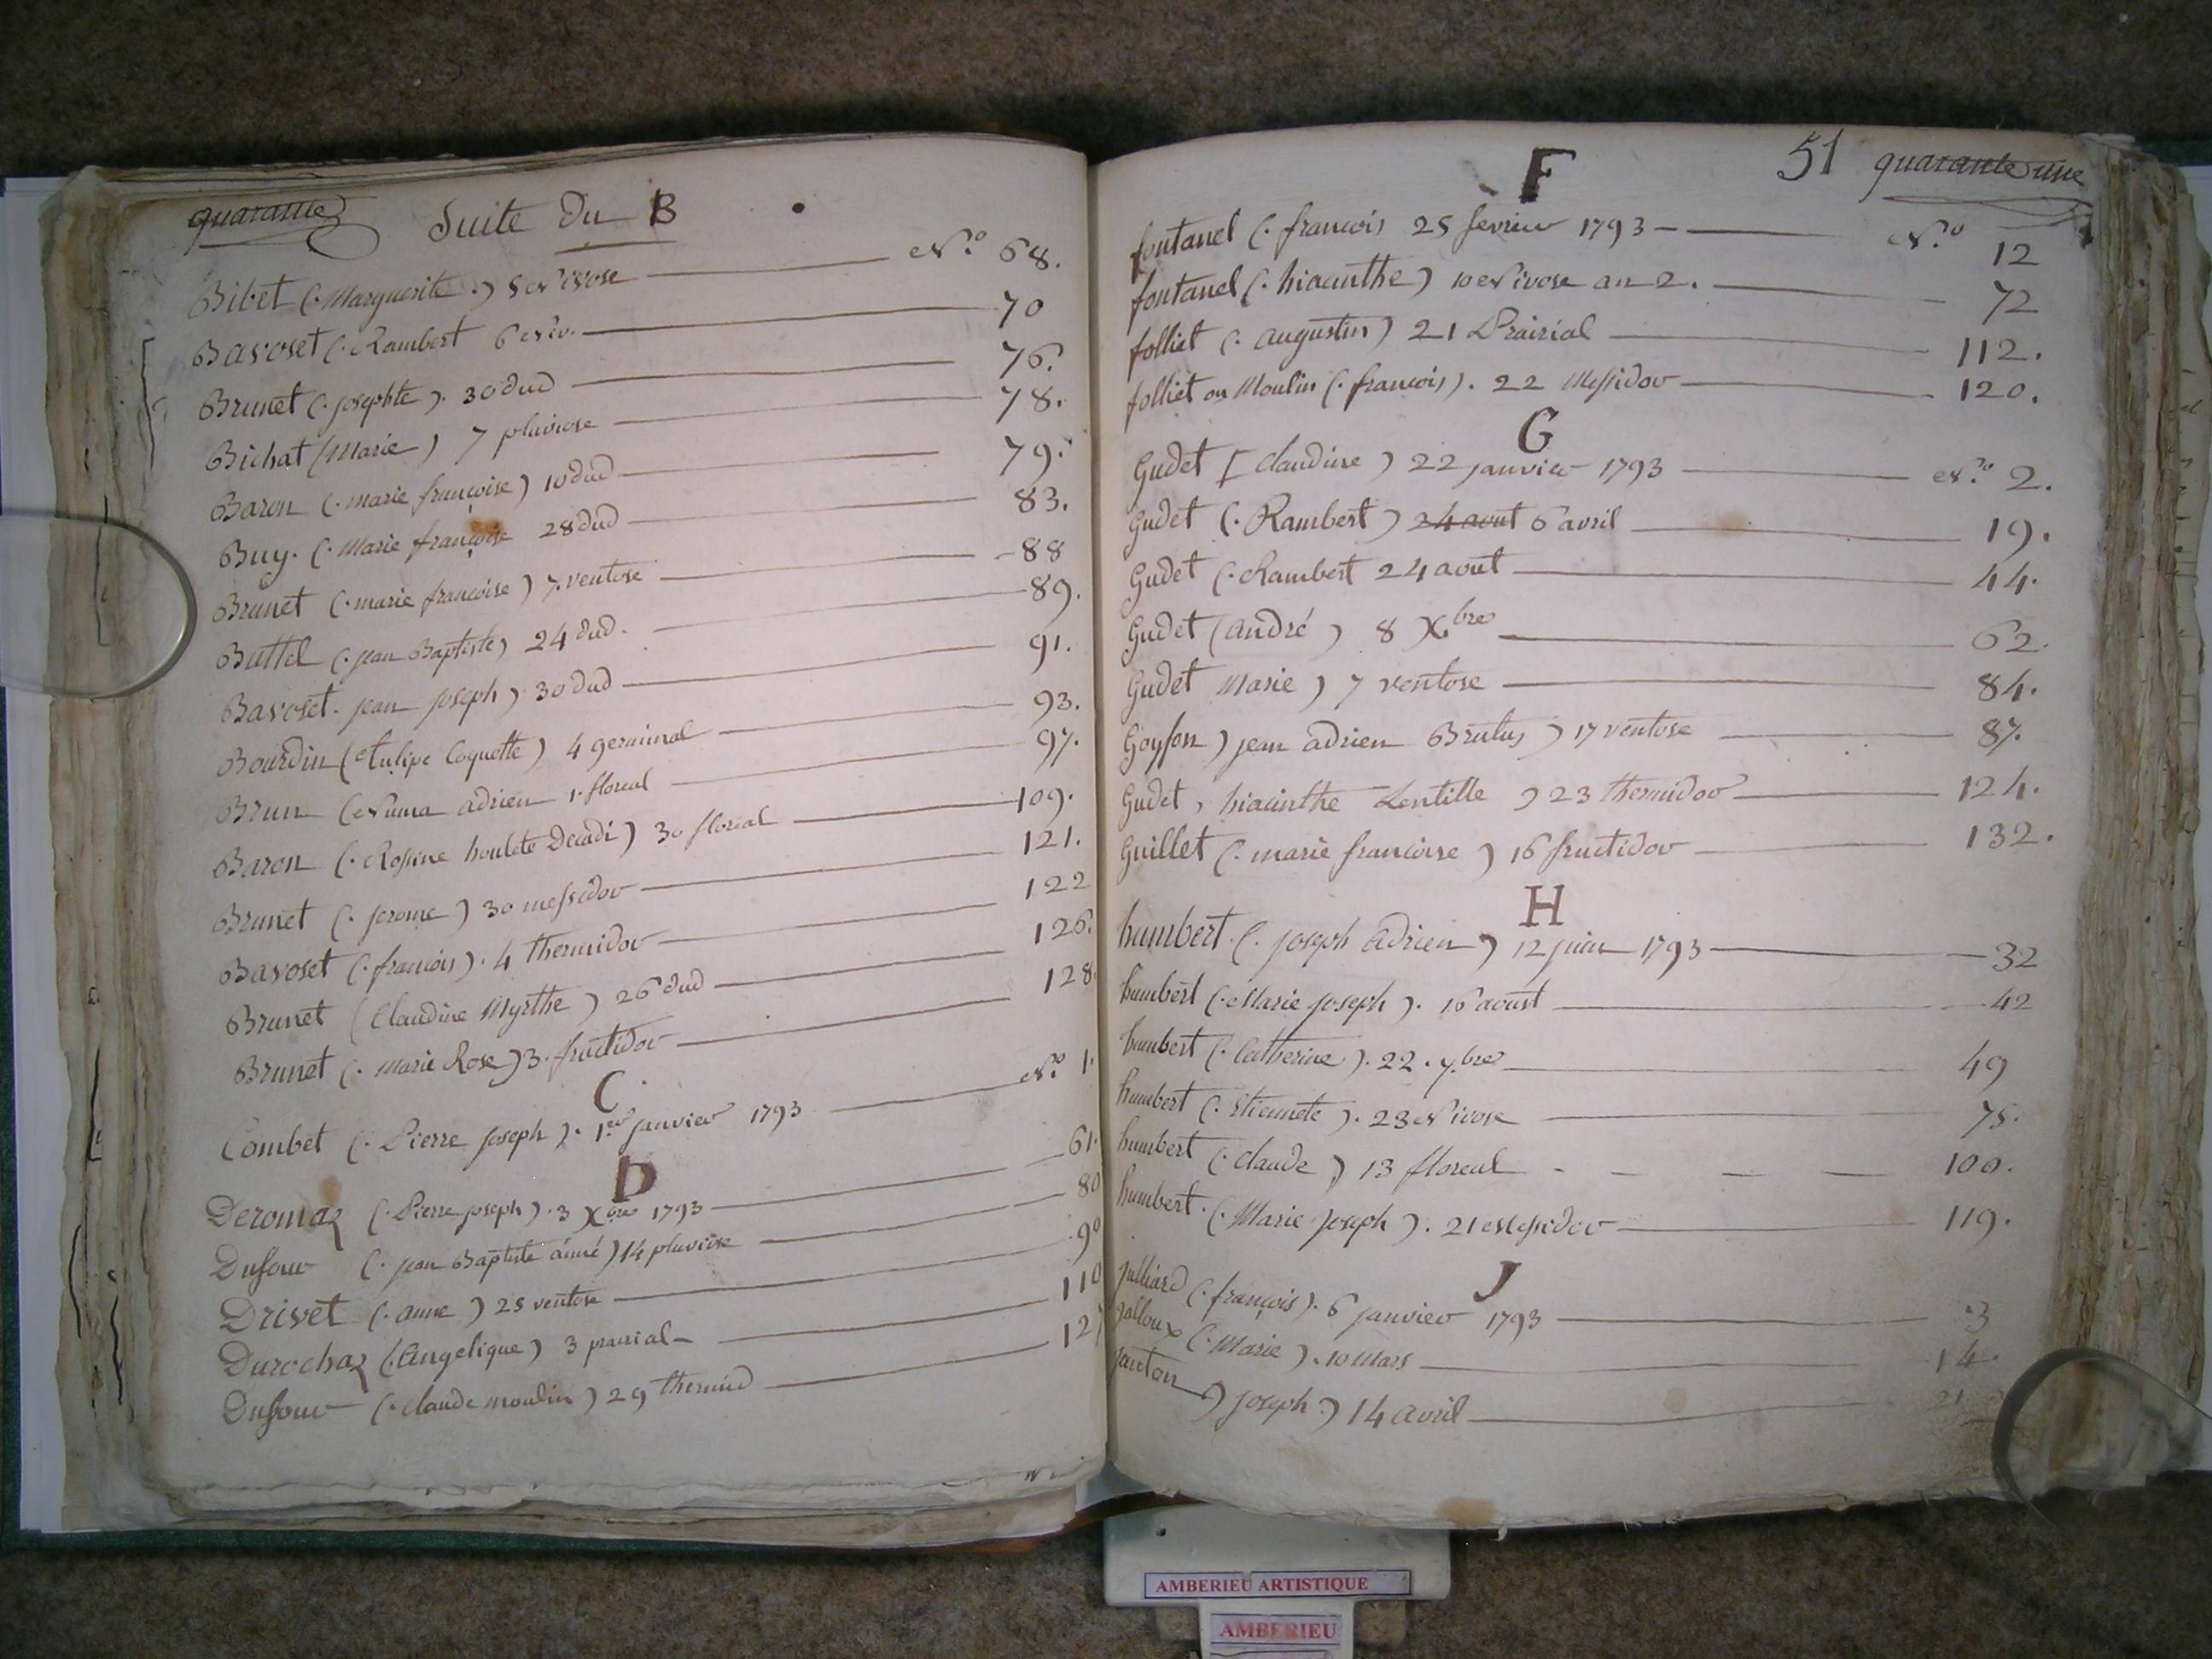 quarante
Suite du B
Bibet (. Marguerite .) 5 Nivose N.o 68.
Bavoset (. Rambert 6 niv. 70
Brunet (. josephte ). 30 dud 76.
Bichat (Marie) 7 pluviose 78.
Baron (. marie françoise) 10 dud 79.
Buy. (. Marie françoise 28 dud 83.
Brunet (. marie francoise ) 7. ventose 88
Buttel (. jean Baptiste) 24 dud. 89.
Bavoset. jean joseph ) 30 dud 91.
Bourdin (Tulipe Coquette) 4 germinal 93.
Brun (Numa adrien 1. floreal 97.
Baron (. Rosine houlete Decadi) 30 floreal 109.
Brunet (. jerome ) 30 messidor 121.
Bavoset (. francois). 4 thermidor 122
Brunet (Claudine Myrthe ) 26 dud 126.
Brunet (. Marie Rose) 3. fructidor 128.
C
Combet (. Pierre joseph ). 1.er janvier 1793 N.o 1.
D
Deromaz (. Pierre joseph ). 3 Xbre 1793 61.
Dufour (. jean Baptiste aimé) 14 pluviôse 80
Drivet (. anne ) 25 ventose 90
Durochaz (. Angelique) 3 prairial 110
Dufour (. claude moulin ) 29 thermid 127
51 quarante une
F
fontanel (. francois 25 fevrier 1793 N.o 12
fontanel (. hiacinthe ) 10 Nivose an 2. 72
folliet (. augustin) 21 Prairial 112.
folliet ou Moulin (. francois). 22 Messidor 120.
G
Gudet [ Claudine ) 22 janvier 1793 N.o 2.
Gudet (. Rambert ) 24 aout 6 avril 19.
Gudet (. Rambert 24 aout 44.
Gudet (André ) 8 X.bre 62.
Gudet Marie ) 7 ventose 84.
Goyffon ) jean adrien Brutus ) 17 ventose 87.
Gudet, hiacinthe Lentille ) 23 thermidor 124.
Guillet (. marie francoise ) 16 fructidor 132.
H
humbert. (. joseph adrien ) 12 juin 1793 32
humbert (. Marie joseph ). 16 aoust 42
humbert (. Catherine ). 22. 7.bre 49
humbert (. Etiennete ). 23 Nivose 75.
humbert (. claude ) 13 floreal 100.
humbert. (. Marie joseph ). 21 Messidor 119.
J
julliard (. françois). 6 janvier 1793 3
jalloux (. Marie ). 10 Mars 14.
janton ) joseph ) 14 avril 21
AMBERIEU ARTISTIQUE
AMBERIEU